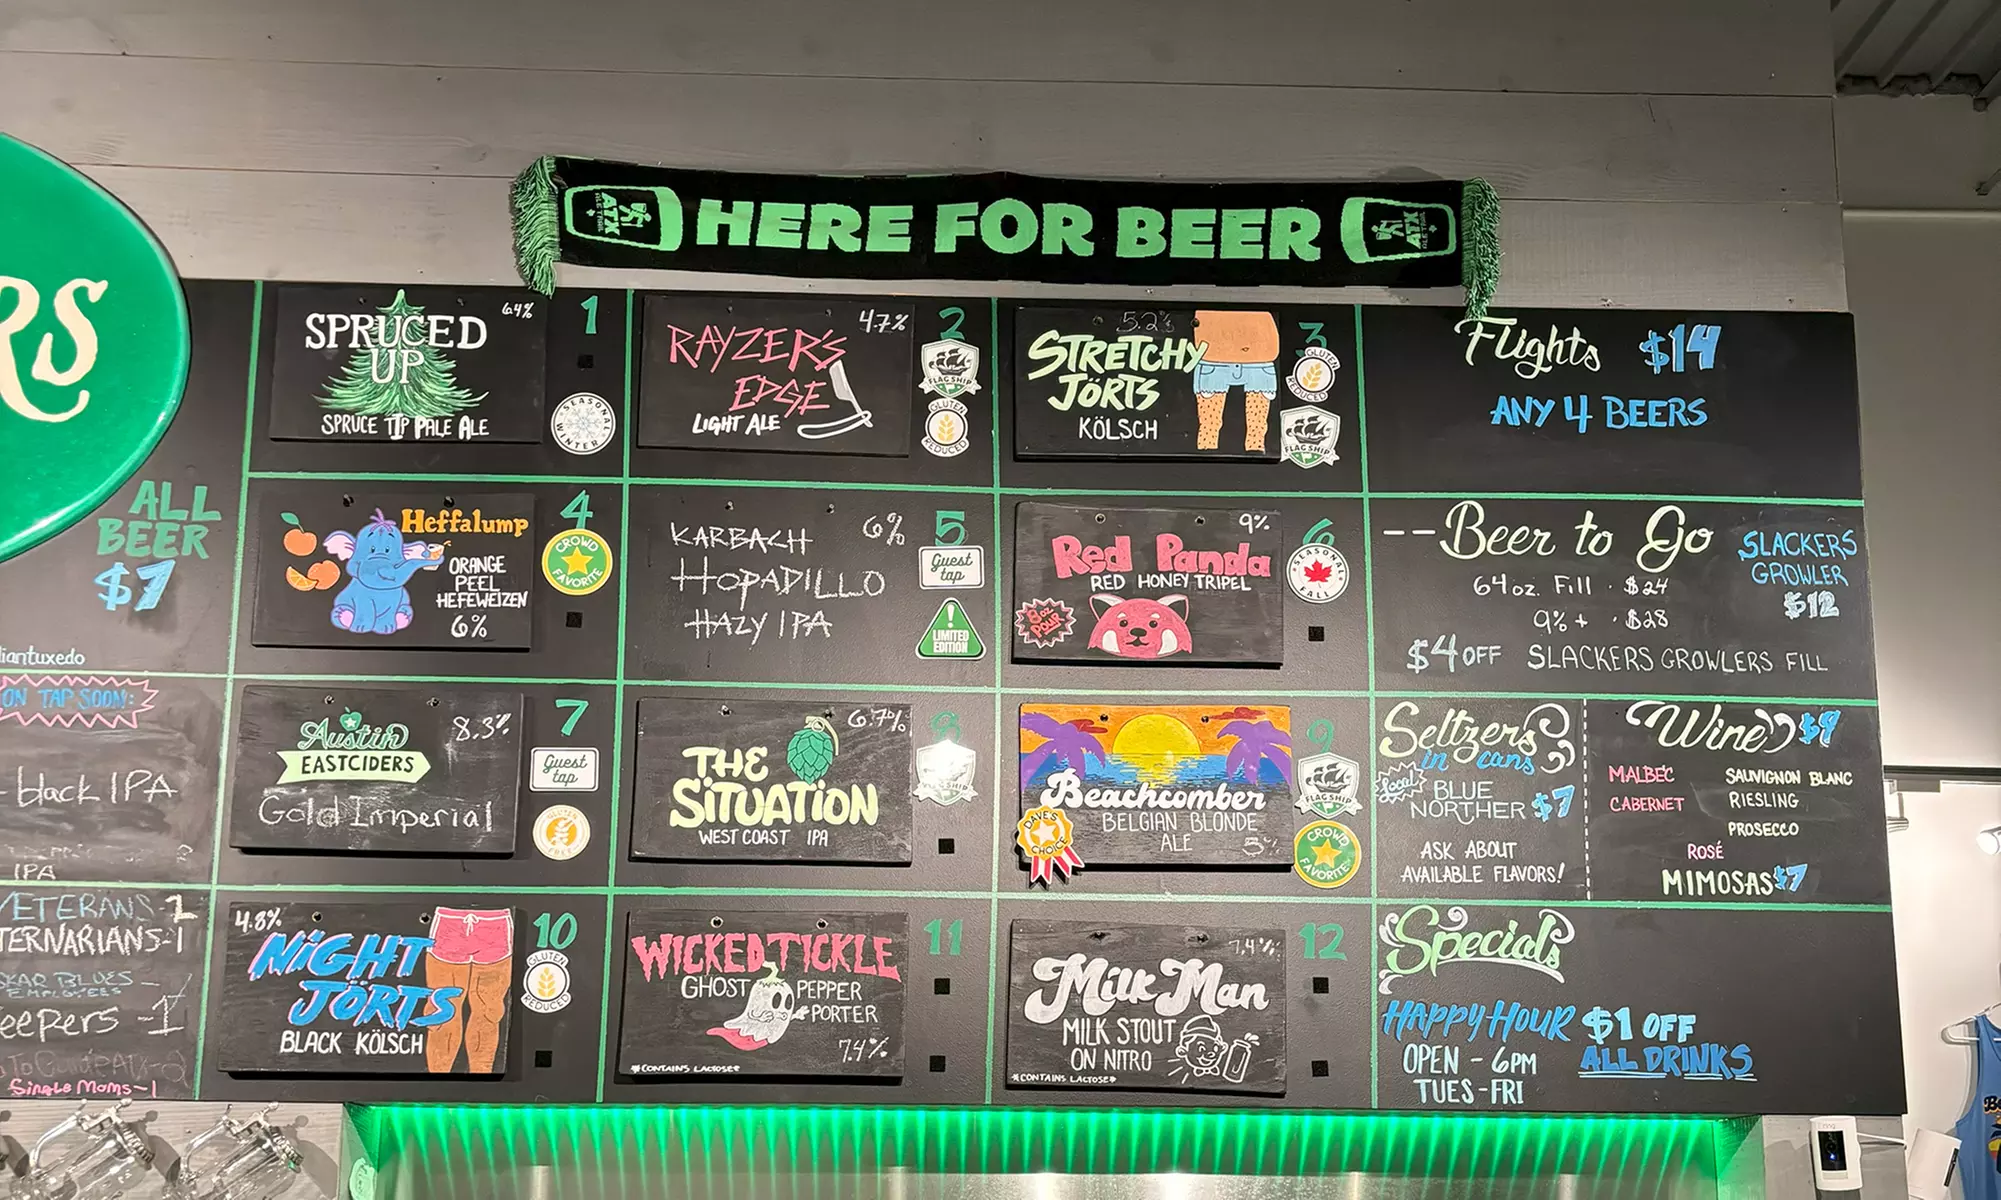 HERE FOR BEER
ATX
ATX
RS
ALL
BEER
$7
liantuxedo
ON TAP SOON:
black IPA
IPA
VETERANS-2
TERNARIANS-1
SKAR BLUES
EMPLOYEES
eepers -1
Single Moms-1
SPRUCED
UP
6.4%
SPRUCE TIP PALE ALE
1
SEASONAL
WINTER
RAYZER'S
EDGE
4.7%
LIGHT ALE
2
FLAGSHIP
GLUTEN
REDUCED
5.2%
STRETCHY
JÖRTS
KÖLSCH
3
GLUTEN
REDUCED
FLAGSHIP
Flights $14
ANY 4 BEERS
Heffalump
ORANGE
PEEL
HEFEWEIZEN
6%
4
CROWD
FAVORITE
KARBACH 6%
HOPADILLO
HAZY IPA
5
Guest
tap
!
LIMITED
EDITION
9%
Red Panda
RED HONEY TRIPEL
8 oz
POUR
6
SEASONAL
FALL
--Beer to Go
64oz. Fill . $24
9% + . $28
$4 OFF SLACKERS GROWLERS FILL
SLACKERS
GROWLER
$12
Austin
EASTCIDERS
8.3%
Gold Imperial
7
Guest
tap
GLUTEN
FREE
6.7%
THE
SITUATION
WEST COAST IPA
8
FLAGSHIP
Beachcomber
BELGIAN BLONDE
ALE 5%
DAVE'S
CHOICE
9
FLAGSHIP
CROWD
FAVORITE
Seltzers
in cans
Local
BLUE
NORTHER $7
ASK ABOUT
AVAILABLE FLAVORS!
Wine $9
MALBEC
CABERNET
SAUVIGNON BLANC
RIESLING
PROSECCO
ROSÉ
MIMOSAS $7
4.8%
NIGHT
JÖRTS
BLACK KÖLSCH
10
GLUTEN
REDUCED
WICKED TICKLE
GHOST PEPPER
PORTER
7.4%
*CONTAINS LACTOSE*
11
7.4%
Milk Man
MILK STOUT
ON NITRO
*CONTAINS LACTOSE*
12
Specials
HAPPY HOUR $1 OFF
OPEN - 6PM ALL DRINKS
TUES-FRI